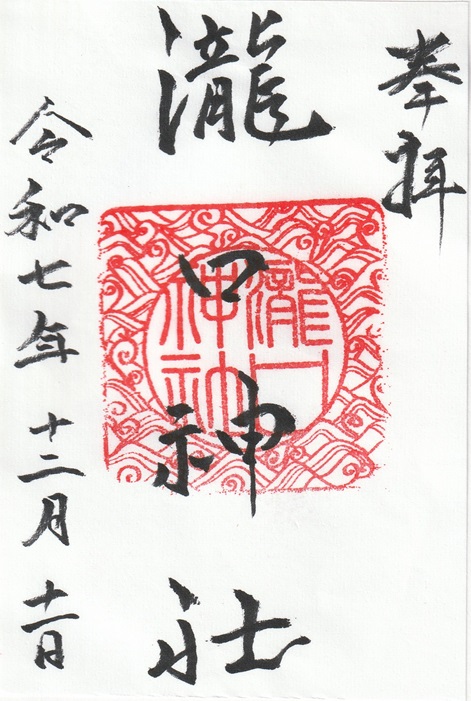 奉拝
瀧口神社
令和七年十二月十一日
瀧口
神社